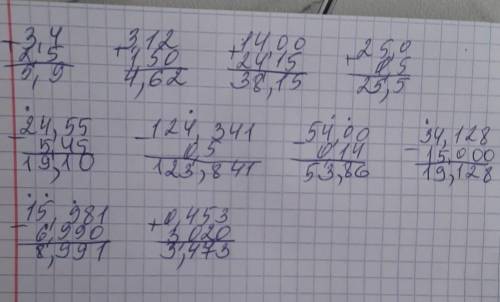 -3,4 +3,12 +14,00 +25,0
2,5 1,50 24,15 0,5
5,9 4,62 38,15 25,5
-24,55 -124,341 -54,00 -34,128
5,45 0,5 0,14 15,000
19,10 123,841 53,86 19,128
-15,981 +0,453
6,990 3,020
8,991 3,473